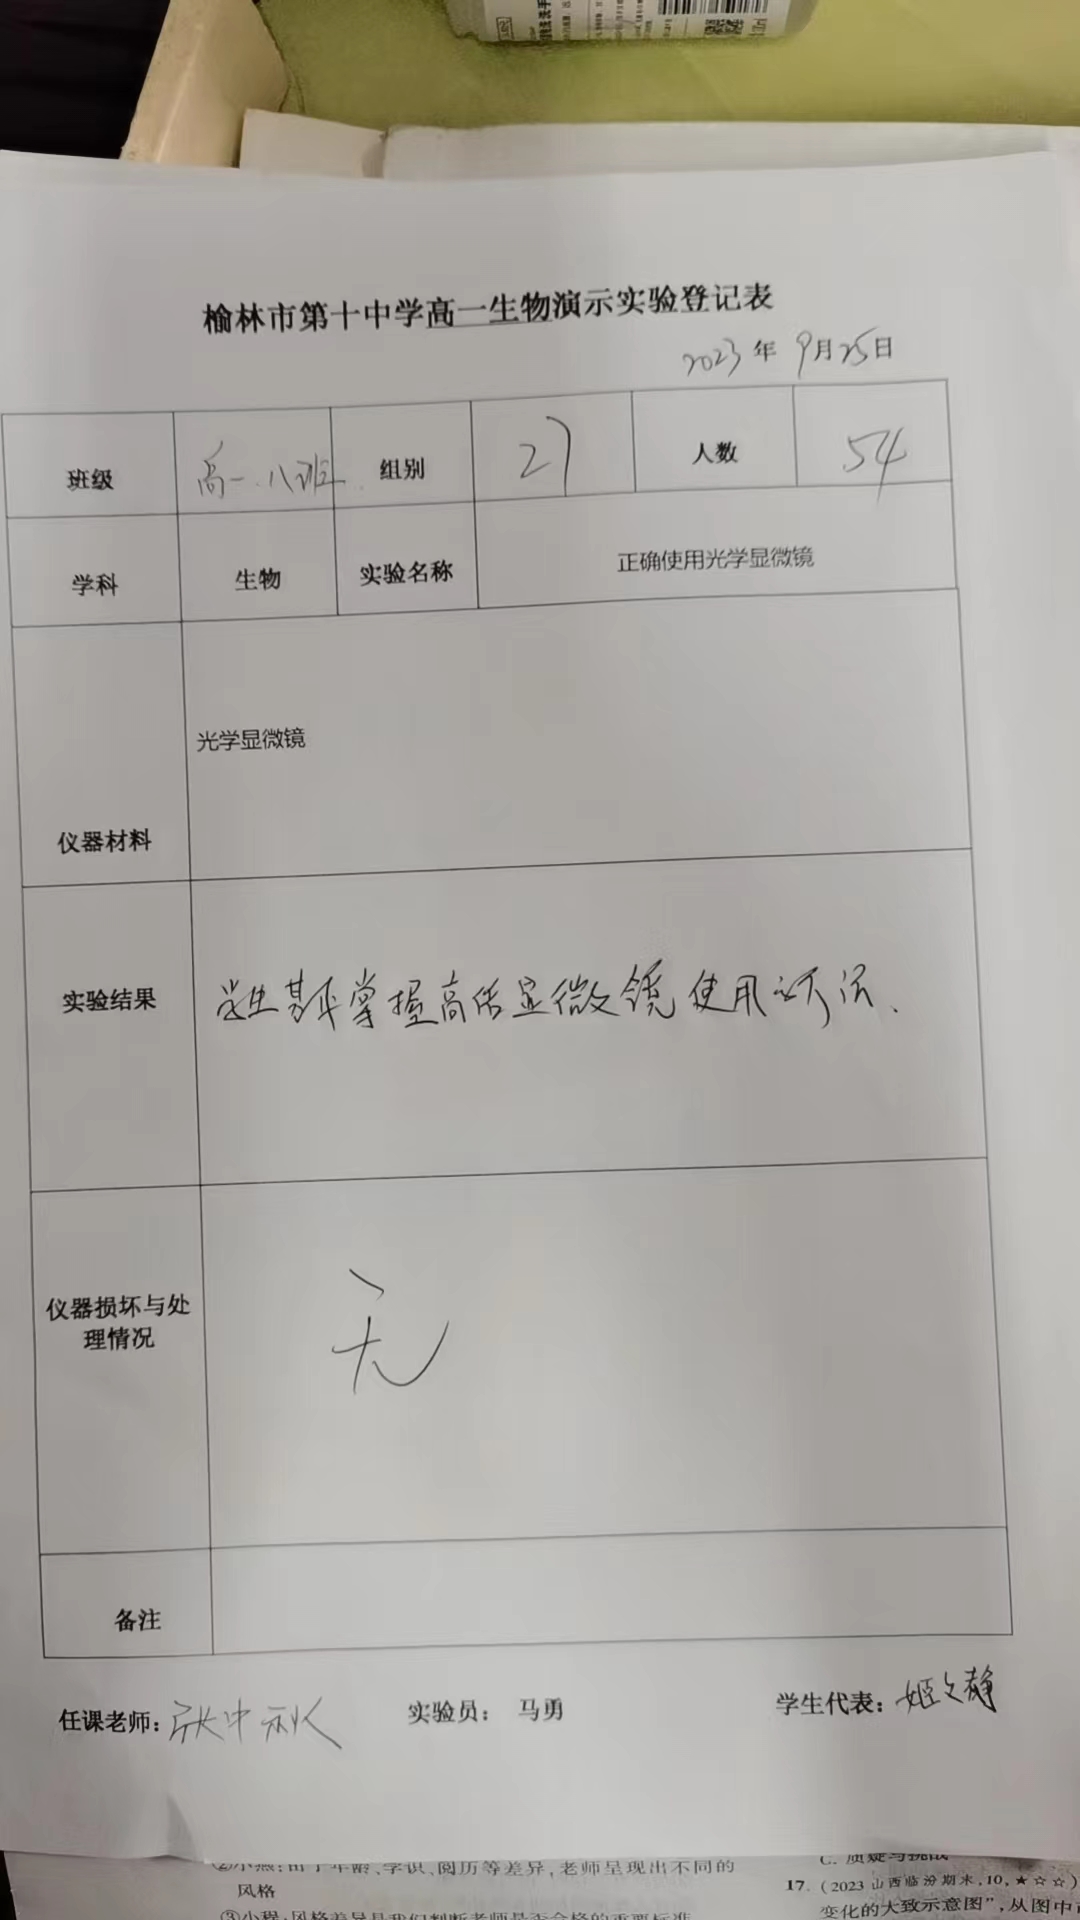 榆林市第十中学高一生物演示实验登记表
2023年9月25日
班级 高一.八班 组别 27 人数 54
学科 生物 实验名称 正确使用光学显微镜
光学显微镜
仪器材料
实验结果 学生基本掌握高倍显微镜使用方法、
仪器损坏与处
理情况
无
备注
任课老师:张中秋 实验员: 马勇 学生代表:姬文静
异,老师呈现出不同的
风格
C. 质疑与挑战
17. (2023山西临汾期末,10,★☆☆)
变化的大致示意图”,从图中